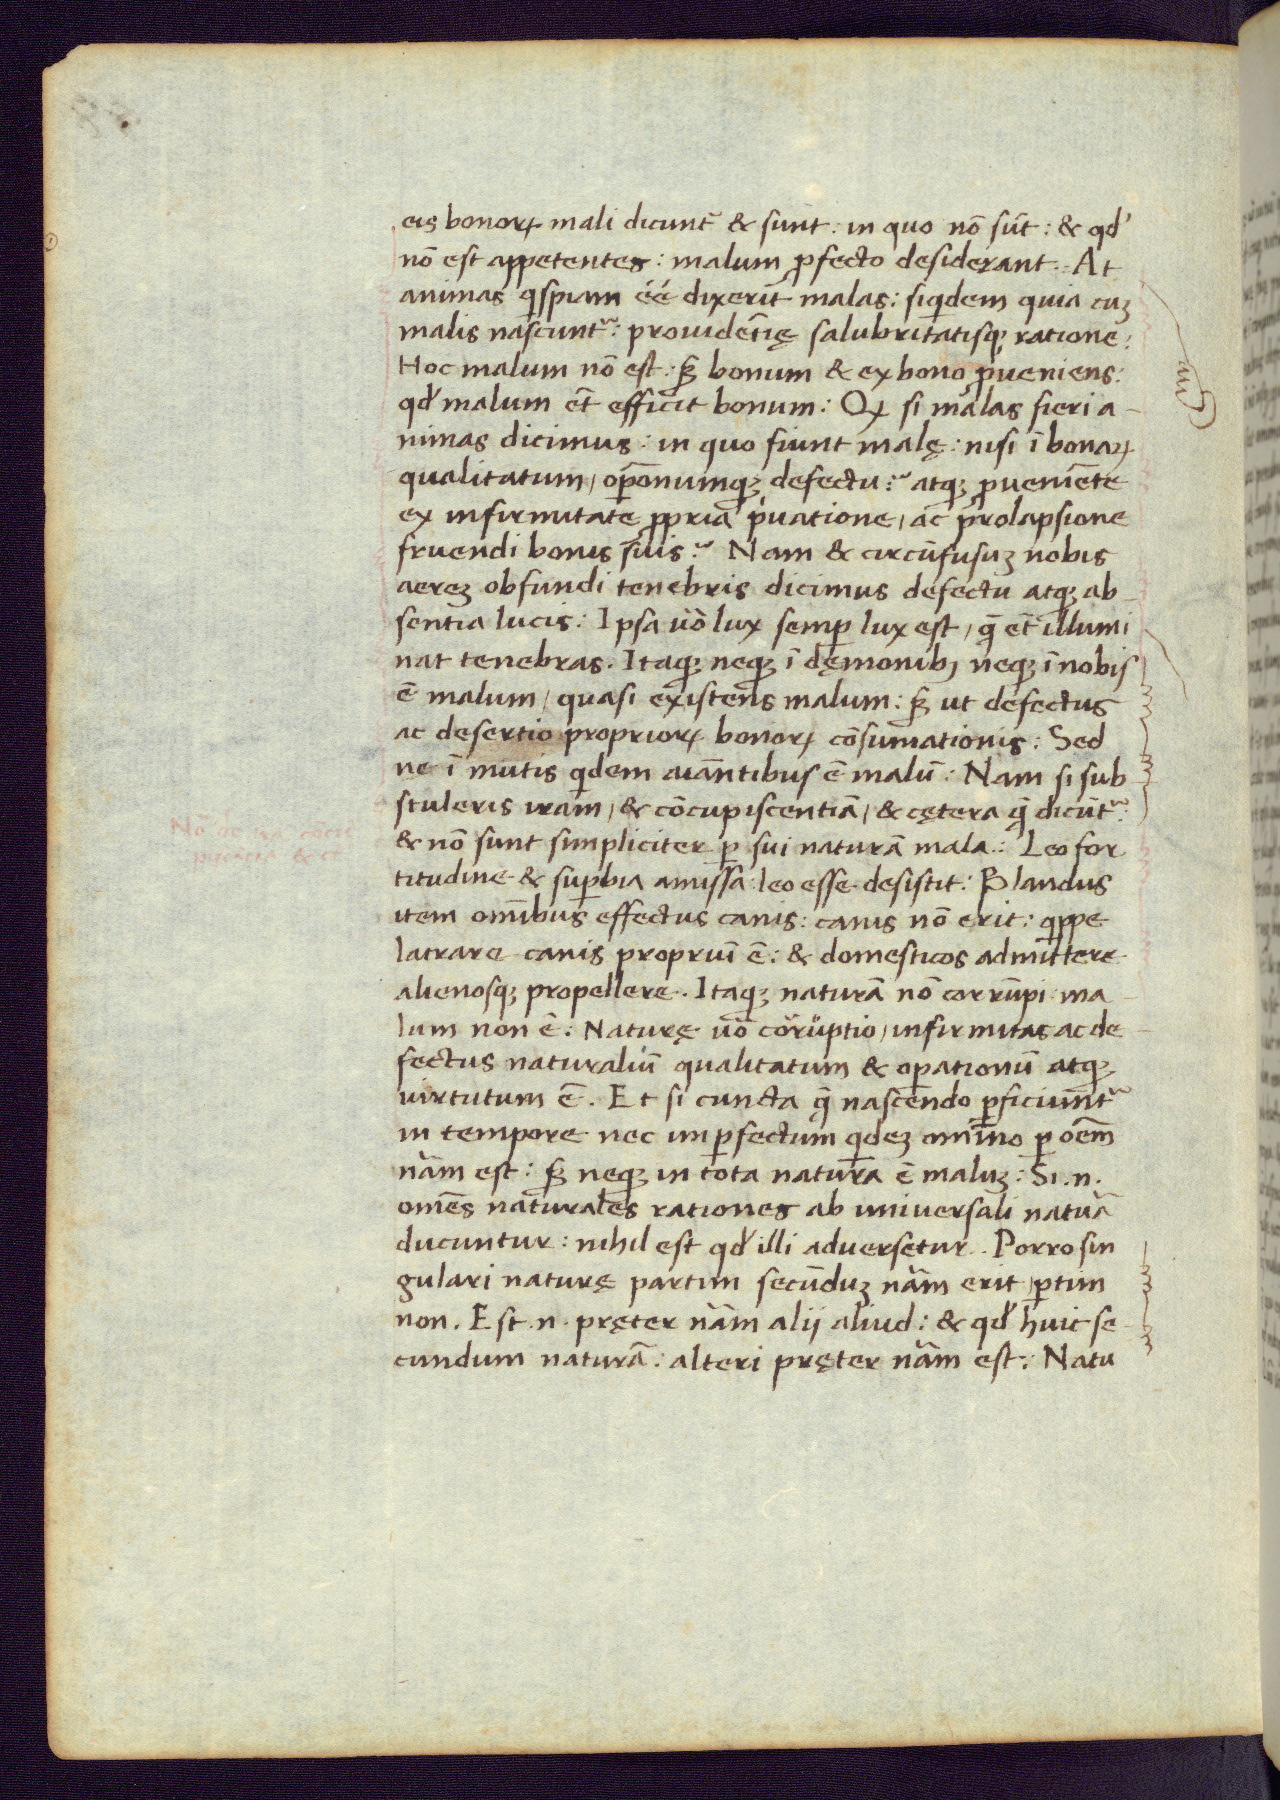 eis bonoꝝ mali dicunt᷑ & sunt : in quo nō sūt : & qd'
nō est appetentes : malum ꝓfecto desiderant . At
animas qͥspiam éé dixerit malas : siqͥdem quia cuꝫ
malis nascunt᷑ : prouidētię salubritatisqꝫ ratione :
Hoc malum nō est : sꝫ bonum & ex bono ꝓueniens :
qd' malum ēt efficit bonum : Qꝫ si malas fieri a-
nimas dicimus : in quo fiunt malę : nisi ī bonaꝝ
qualitatum / oꝑonumqꝫ defectu : atqꝫ ꝓueniēte
ex infirmitate ꝓpria pͥuatione / ac prolapsione
fruendi bonis suis : Nam & circūfusuꝫ nobis
aereꝫ obfundi tenebris dicimus defectu atqꝫ ab-
sentia lucis : Ipsa ūo lux semꝑ lux est / q̄ ēt illumi
nat tenebras . Itaqꝫ neqꝫ ī dęmonibꝫ neqꝫ ī nobis
ē malum / quasi existens malum : sꝫ ut defectus
ac desertio proprioꝝ bonoꝝ cōsumationis : Sed
ne ī mutis qͥdem aiāntibus ē malū : Nam si sub
stuleris iram / & cōcupiscentiā / & cętera q̄ dicūt᷑ :
& nō sunt simpliciter ꝑ sui naturā mala : Leo for
titudine & suꝑbia amissa : leo esse desistit : Blandus
item omībus effectus canis : canis nō erit : qͥppe
latrare canis propriū ē : & domesticos admittere
alienosqꝫ propellere . Itaqꝫ naturā nō corrūpi : ma-
lum non ē : Naturę ūo corruptio / infirmitas ac de-
fectus naturaliū qualitatum & oꝑationū atqꝫ
virtutum ē . Et si cuncta q̄ nascendo ꝑficiunt᷑
in tempore nec imꝑfectum qͥdeꝫ omīno ꝑ oēm
nām est : sꝫ neqꝫ in tota natura ē maluꝫ : Si .n.
omēs naturales rationes ab universali natuā
ducuntur : nihil est qd' illi adversetur . Porro sin
gulari naturę partim secūduꝫ nām erit / ꝑtim
non . Est .n. pręter nām alij aliud : & qd' huic se-
cundum naturā : alteri pręter nām est : Natu